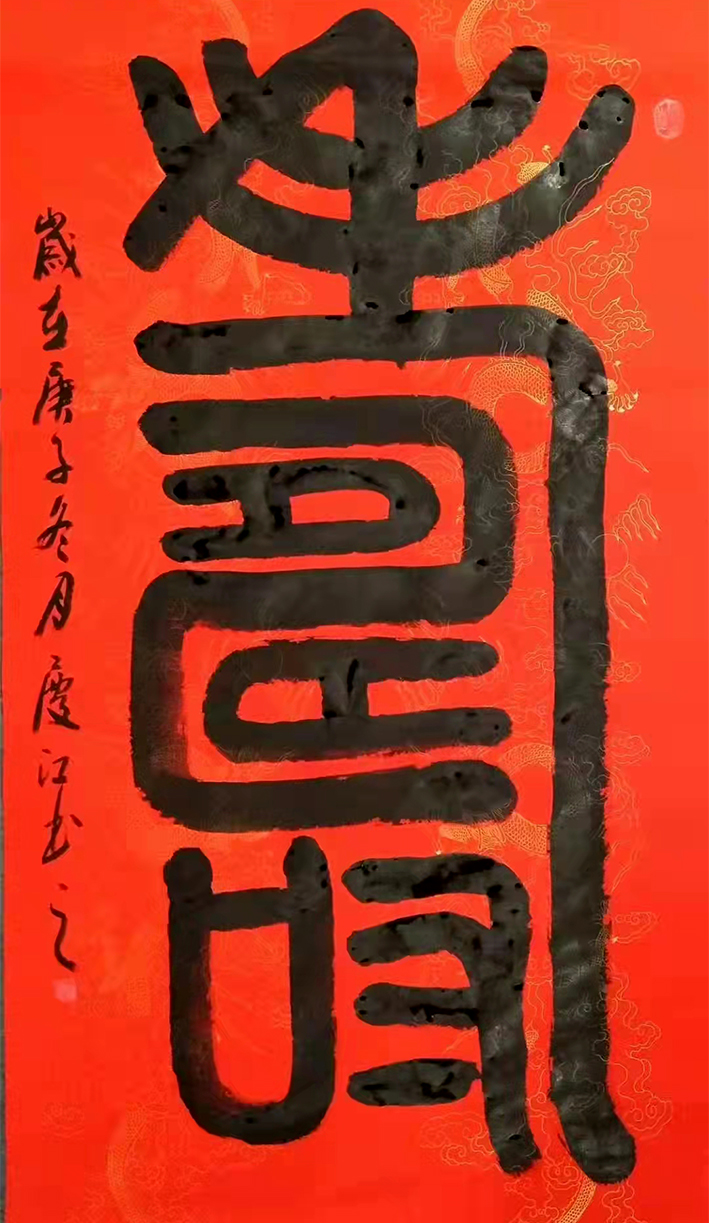 壽
歲在庚子冬月慶江书之